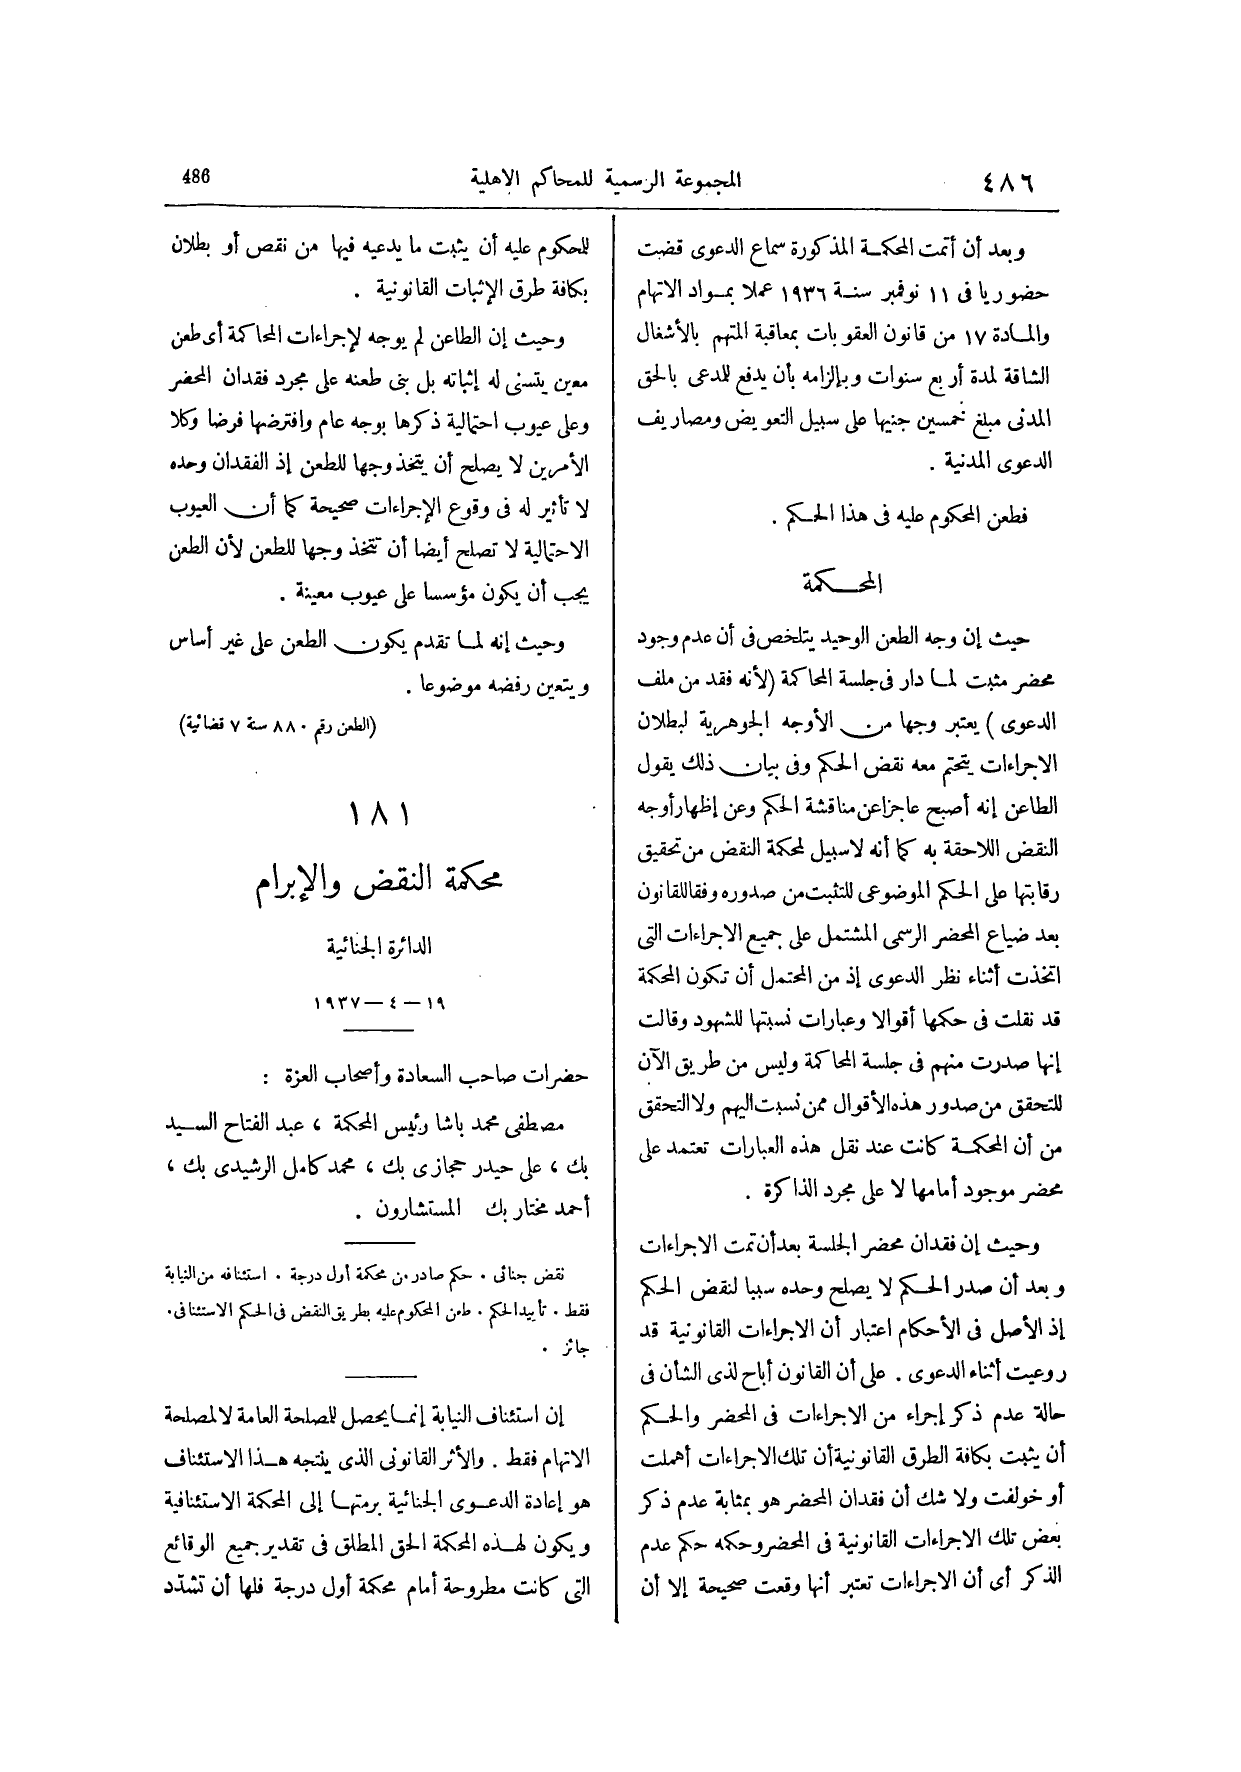 ٤٨٦
المجموعة الرسمية للمحاكم الاهلية
486
وبعد أن أتمت المحكمة المذكورة سماع الدعوى قضت
حضوريا فى ١١ نوفمبر سنة ١٩٣٦ عملا بمواد الاتهام
والمادة ١٧ من قانون العقوبات بمعاقبة المتهم بالأشغال
الشاقة لمدة أربع سنوات وبإلزامه بأن يدفع للمدعى بالحق
المدنى مبلغ خمسين جنيها على سبيل التعويض ومصاريف
الدعوى المدنية .
فطعن المحكوم عليه فى هذا الحكم .
المحكمة
حيث إن وجه الطعن الوحيد يتلخص فى أن عدم وجود
محضر مثبت لما دار فى جلسة المحاكمة (لأنه فقد من ملف
الدعوى) يعتبر وجها من الأوجه الجوهرية لبطلان
الاجراءات يتحتم معه نقض الحكم وفى بيان ذلك يقول
الطاعن إنه أصبح عاجزا عن مناقشة الحكم وعن إظهار أوجه
النقض اللاحقة به كما أنه لا سبيل لمحكمة النقض من تحقيق
رقابتها على الحكم الموضوعى للتثبت من صدوره وفقا للقانون
بعد ضياع المحضر الرسمى المشتمل على جميع الاجراءات التى
اتخذت أثناء نظر الدعوى إذ من المحتمل أن تكون المحكمة
قد نقلت فى حكمها أقوالا وعبارات نسبتها للشهود وقالت
إنها صدرت منهم فى جلسة المحاكمة وليس من طريق الآن
للتحقق من صدور هذه الأقوال ممن نسبت اليهم ولا التحقق
من أن المحكمة كانت عند نقل هذه العبارات تعتمد على
محضر موجود أمامها لا على مجرد الذاكرة .
وحيث إن فقدان محضر الجلسة بعد أن تمت الاجراءات
وبعد أن صدر الحكم لا يصلح وحده سببا لنقض الحكم
إذ الأصل فى الأحكام اعتبار أن الاجراءات القانونية قد
روعيت أثناء الدعوى . على أن القانون أباح لذى الشأن فى
حالة عدم ذكر إجراء من الاجراءات فى المحضر والحكم
أن يثبت بكافة الطرق القانونية أن تلك الاجراءات أهملت
أو خولفت ولا شك أن فقدان المحضر هو بمثابة عدم ذكر
بعض تلك الاجراءات القانونية فى المحضر وحكمه حكم عدم
الذكر أى أن الاجراءات تعتبر أنها وقعت صحيحة إلا أن
للمحكوم عليه أن يثبت ما يدعيه فيها من نقص أو بطلان
بكافة طرق الإثبات القانونية .
وحيث إن الطاعن لم يوجه لإجراءات المحاكمة أى طعن
معين يتسنى له إثباته بل بنى طعنه على مجرد فقدان المحضر
وعلى عيوب احتمالية ذكرها بوجه عام وافترضها فرضا وكلا
الأمرين لا يصلح أن يتخذ وجها للطعن إذ الفقدان وحده
لا تأثير له فى وقوع الإجراءات صحيحة كما أن العيوب
الاحتمالية لا تصلح أيضا أن تتخذ وجها للطعن لأن الطعن
يجب أن يكون مؤسسا على عيوب معينة .
وحيث إنه لما تقدم يكون الطعن على غير أساس
ويتعين رفضه موضوعا .
(الطعن رقم ٨٨٠ سنة ٧ قضائية)
١٨١
محكمة النقض والإبرام
الدائرة الجنائية
١٩ — ٤ — ١٩٣٧
حضرات صاحب السعادة وأصحاب العزة :
مصطفى محمد باشا رئيس المحكمة ، عبد الفتاح السيد
بك ، على حيدر حجازى بك ، محمد كامل الرشيدى بك ،
أحمد مختار بك المستشارون .
نقض جنائى . حكم صادر من محكمة أول درجة . استئنافه من النيابة
فقط . تأييد الحكم . طعن المحكوم عليه بطريق النقض فى الحكم الاستئنافى .
جائز .
إن استئناف النيابة إنما يحصل للمصلحة العامة لا لمصلحة
الاتهام فقط . والأثر القانونى الذى ينتجه هذا الاستئناف
هو إعادة الدعوى الجنائية برمتها إلى المحكمة الاستئنافية
ويكون لهذه المحكمة الحق المطلق فى تقدير جميع الوقائع
التى كانت مطروحة أمام محكمة أول درجة فلها أن تشدّد